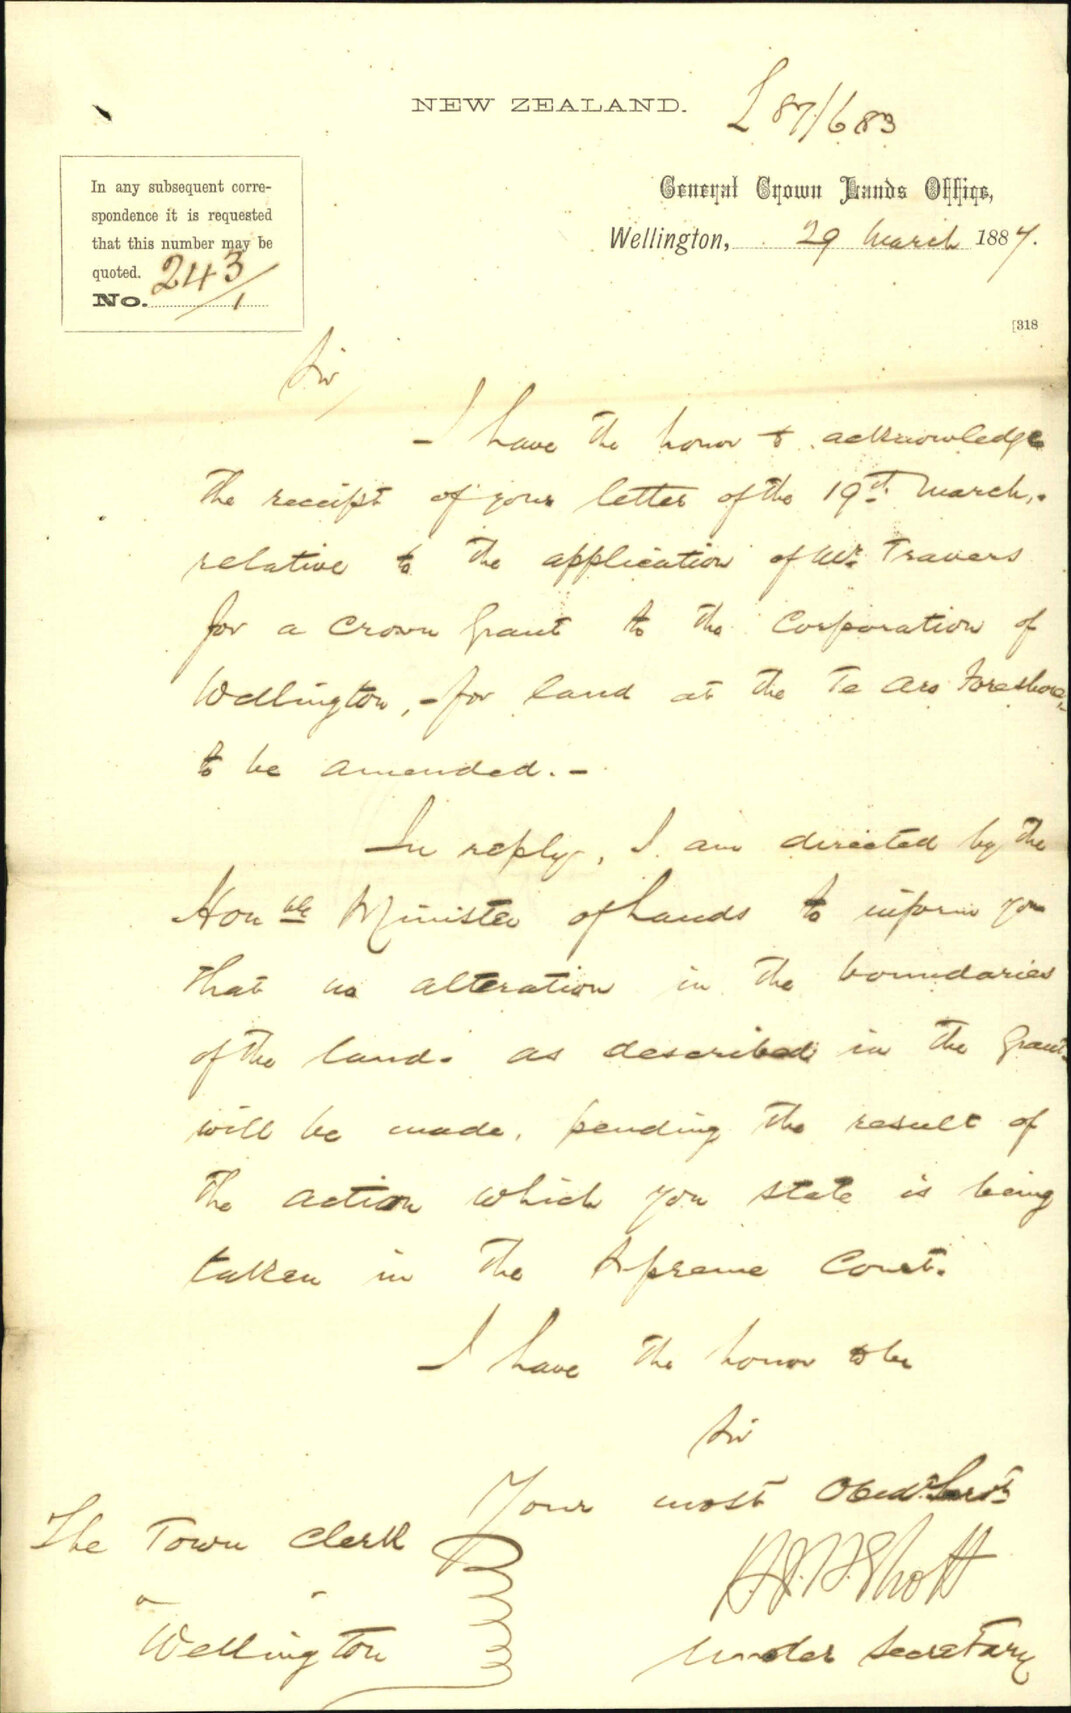 NEW ZEALAND.
L 87/683
General Crown Lands Office,
Wellington, 29 March 1887.
In any subsequent corre-
spondence it is requested
that this number may be
quoted.
No. 243/1
[318
Sir,
I have the honor to acknowledge
the receipt of your letter of the 19th March,
relative to the application of Mr. Travers
for a Crown Grant to the Corporation of
Wellington, - for land at the Te Aro Foreshore,
to be amended. -
In reply, I am directed by the
Honble Minister of Lands to inform you
that no alteration in the boundaries
of the land as described in the Grant
will be made, pending the result of
the action which you state is being
taken in the Supreme Court.
I have the honor to be
Sir
Your most Obedt Servt
Under Secretary
The Town Clerk
Wellington